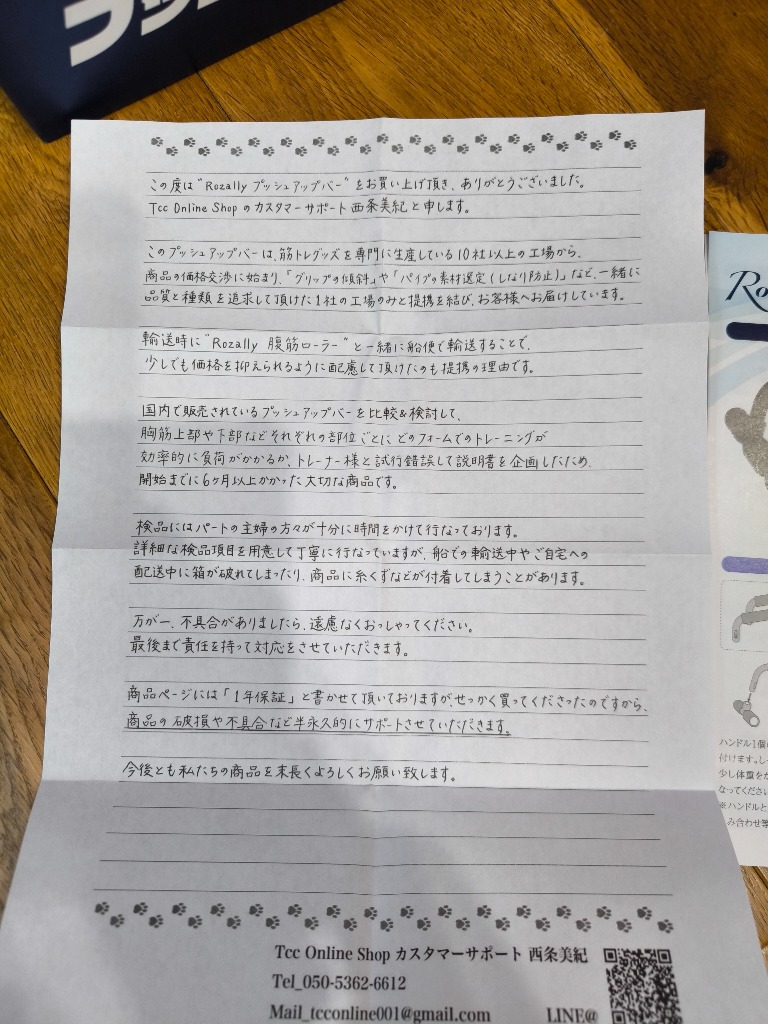 この度は"Rozally プッシュアップバー"をお買い上げ頂き、ありがとうございました。
Tcc Online Shopのカスタマーサポート西条美紀と申します。
このプッシュアップバーは、筋トレグッズを専門に生産している10社以上の工場から、
商品の価格交渉に始まり、「グリップの傾斜」や「パイプの素材選定(しなり防止)」など、一緒に
品質と種類を追求して頂けた1社の工場のみと提携を結び、お客様へお届けしています。
輸送時に"Rozally 腹筋ローラー"と一緒に船便で輸送することで、
少しでも価格を抑えられるように配慮して頂けたのも提携の理由です。
国内で販売されているプッシュアップバーを比較&検討して、
胸筋上部や下部などそれぞれの部位ごとにどのフォームでのトレーニングが
効率的に負荷がかかるか、トレーナー様と試行錯誤して説明書を企画したため、
開始までに6ヶ月以上かかった大切な商品です。
検品にはパートの主婦の方々が十分に時間をかけて行なっております。
詳細な検品項目を用意して丁寧に行なっていますが、船での輸送中やご自宅への
配送中に箱が破れてしまったり、商品に糸くずなどが付着してしまうことがあります。
万が一、不具合がありましたら、遠慮なくおっしゃってください。
最後まで責任を持って対応をさせていただきます。
商品ページには「1年保証」と書かせて頂いておりますがせっかく買ってくださったのですから、
商品の破損や不具合など半永久的にサポートさせていただきます。
今後とも私たちの商品を末長くよろしくお願い致します。
Tcc Online Shop カスタマーサポート 西条美紀
Tel_050-5362-6612
Mail_tcconline001@gmail.com LINE@
Ro
ハンドル1個
付けます。し
少し体重をか
なってください
※ハンドルと
み合わせ等